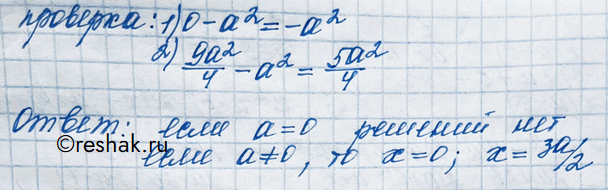 проверка: 1) 0 - a² = -a²
2) 9a²/4 - a² = 5a²/4
Ответ: если a=0 решений нет
если a≠0, то x=0; x=3a/2
©reshak.ru